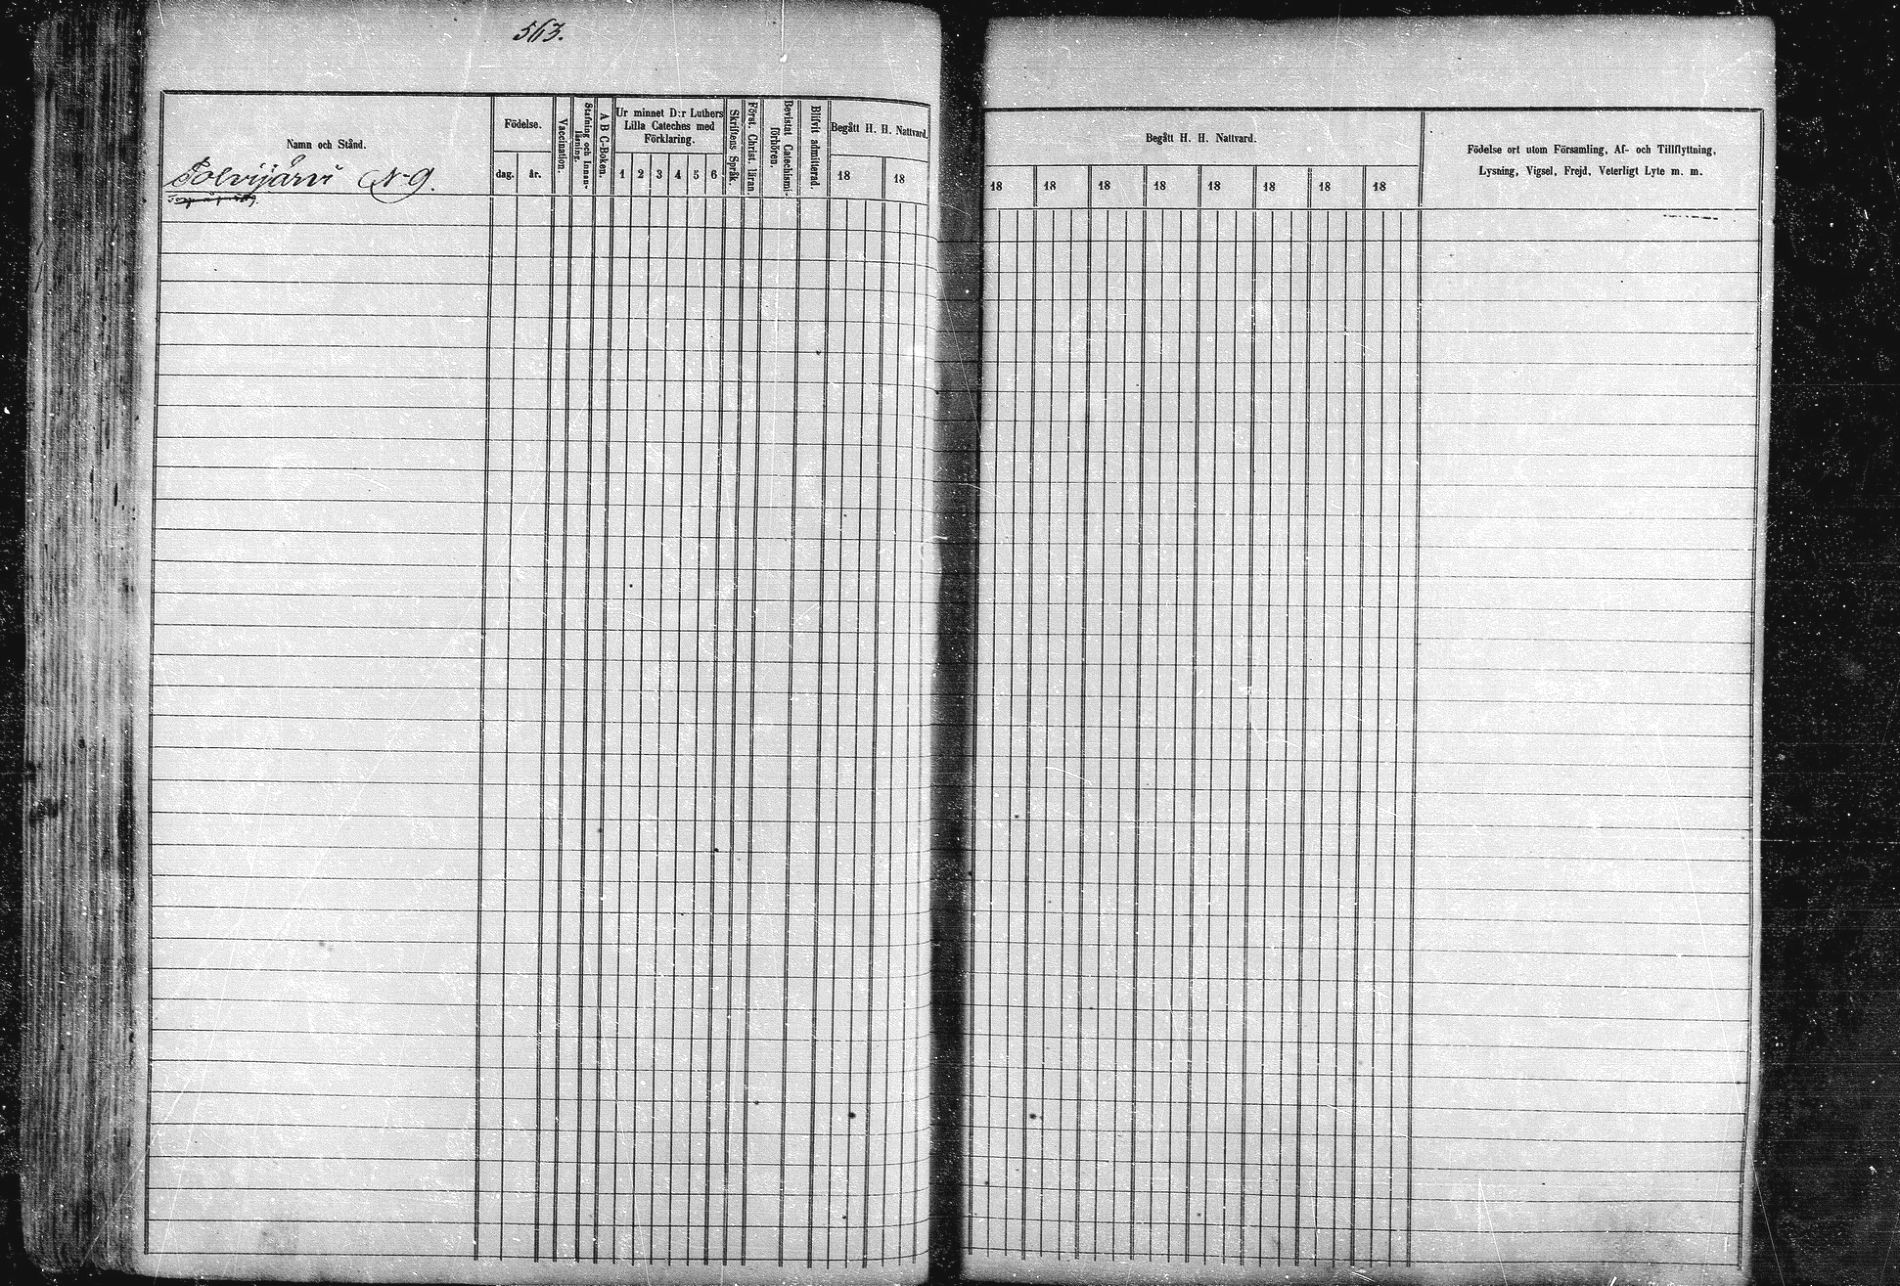 563.
Namn och Stånd.
Tolvijärvi N 9.
Födelse.
dag.
år.
Vaccination.
Stafning och Innan-
läsning.
A B C-Boken.
Ur minnet D:r Luthers
Lilla Cateches med
Förklaring.
1 2 3 4 5 6
Skriftens Språk.
Först. Christ. läran.
Bevistat Catechismi-
förhören.
Blifvit admitterad.
Begått H. H. Nattvard.
18 18
Begått H. H. Nattvard.
18 18 18 18 18 18 18 18
Födelse ort utom Församling, Af- och Tillflyttning,
Lysning, Vigsel, Frejd, Veterligt Lyte m. m.